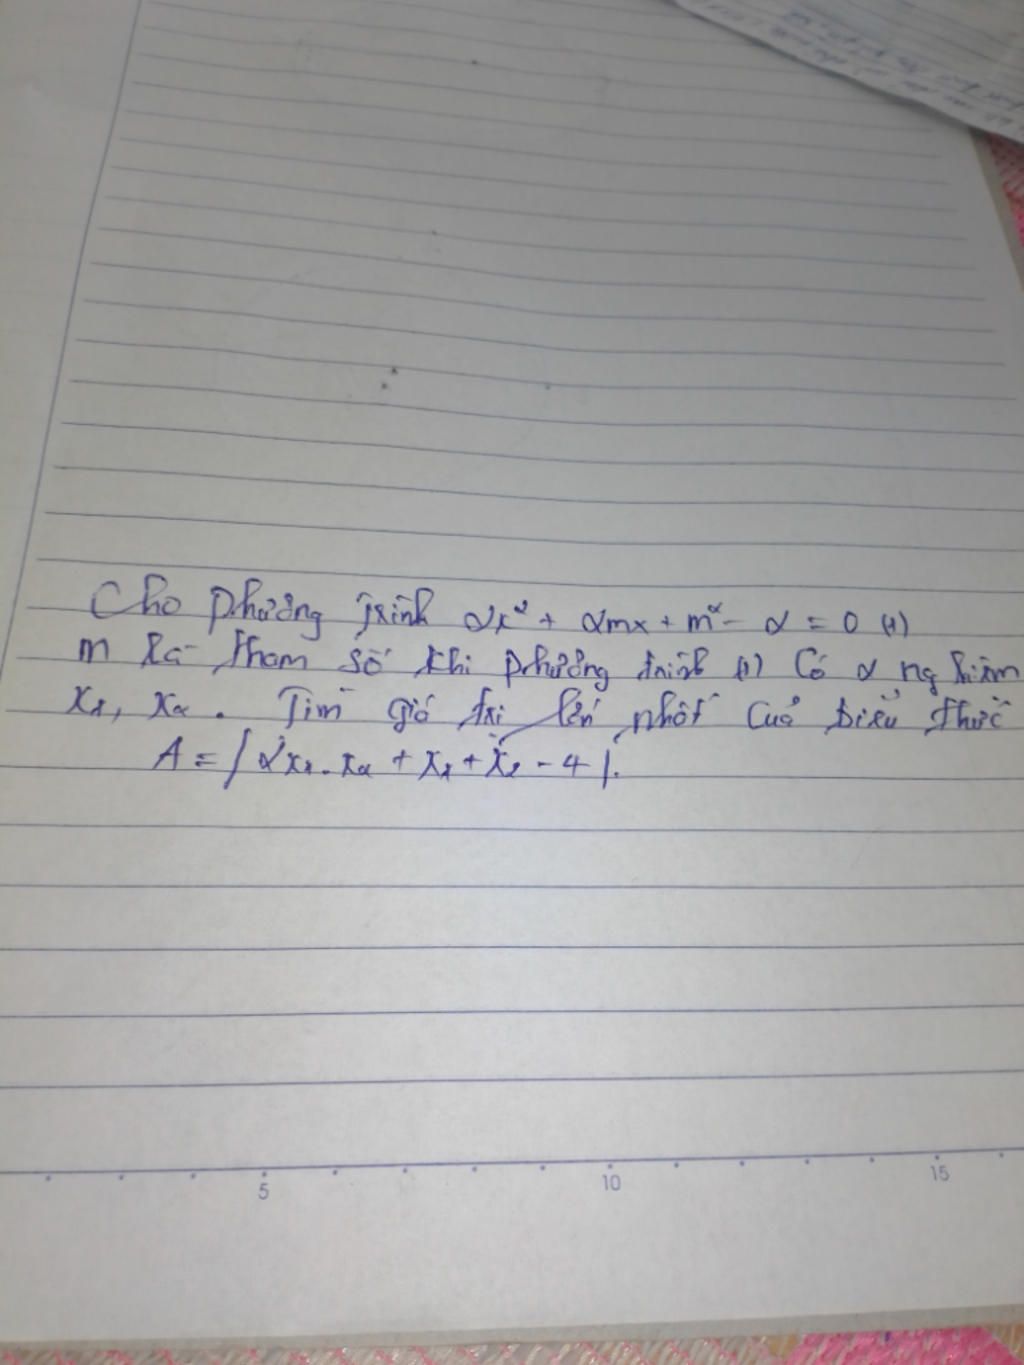 Cho phương trình 2x² + 2mx + m² - 2 = 0 (1)
m là tham số khi phương trình (1) Có 2 nghiệm
x₁, x₂. Tìm giá trị lớn nhất của biểu thức
A = | 2x₁.x₂ + x₁ + x₂ - 4 |.
5 10 15